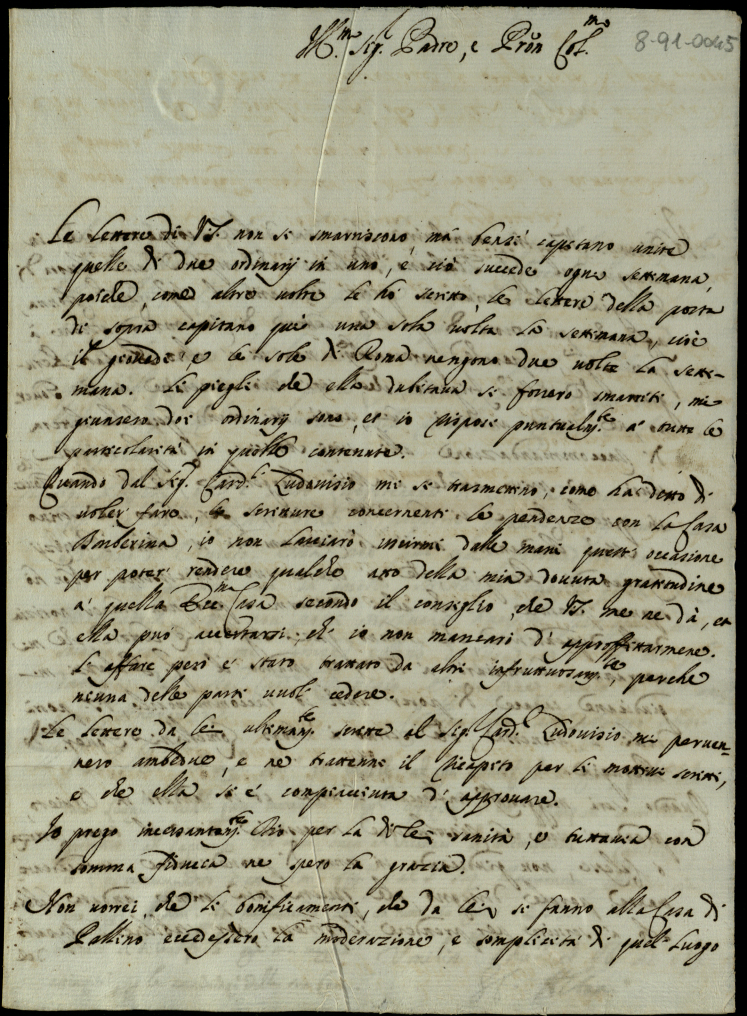 Ill.mo Sig. Padre, e Pron Col.mo
8-91-0045
Le lettere di VS. non si smarriscono, mà bensì capitano unite
quelle di due ordinarij in uno, e ciò succede ogni settimana,
poiche, come altre volte le hò scritto, le lettere della posta
di sopra capitano quì una sola volta la settimana, cioè
il giovedì e le sole di Roma vengono due volte la setti-
mana. Le pieghe che ella dubitava si fossero smarriti, mi
giunsero due ordinarij sono, et io risposi puntualm.te a tutte le
particolarità in quelle contenute.
Quando dal Sig. Card.l Ludovisio mi si trasmettino, come hà detto di
voler fare, le scritture concernenti le pendenze con la Casa
Barberina, io non lasciarò uscirmi dalle mani questa occasione
per poter rendere qualche atto della mia dovuta gratitudine
a quella Ecc.ma Casa secondo il consiglio, che VS. me ne dà, et
ella può accertarsi, che io non mancarò d'approffittarmene.
L'affare però è stato trattato da altri infruttuosam.te, perche
niuna delle parti vuol cedere.
Le lettere da lei ultimam.te scritte al Sig. Card.l Ludovisio mi perven-
nero ambedue, e ne trattenni il recapito per li motivi scritti,
e che ella si è compiaciuta d'approvare.
Io prego incessantem.te Dio per la di lei sanità, e tuttavia con
somma fiducia ne spero la grazia.
Non vorrei, che li bonificamenti, che da lei si fanno alla Casa di
Palleno eccedessero la moderazione, e semplicità di quel luogo